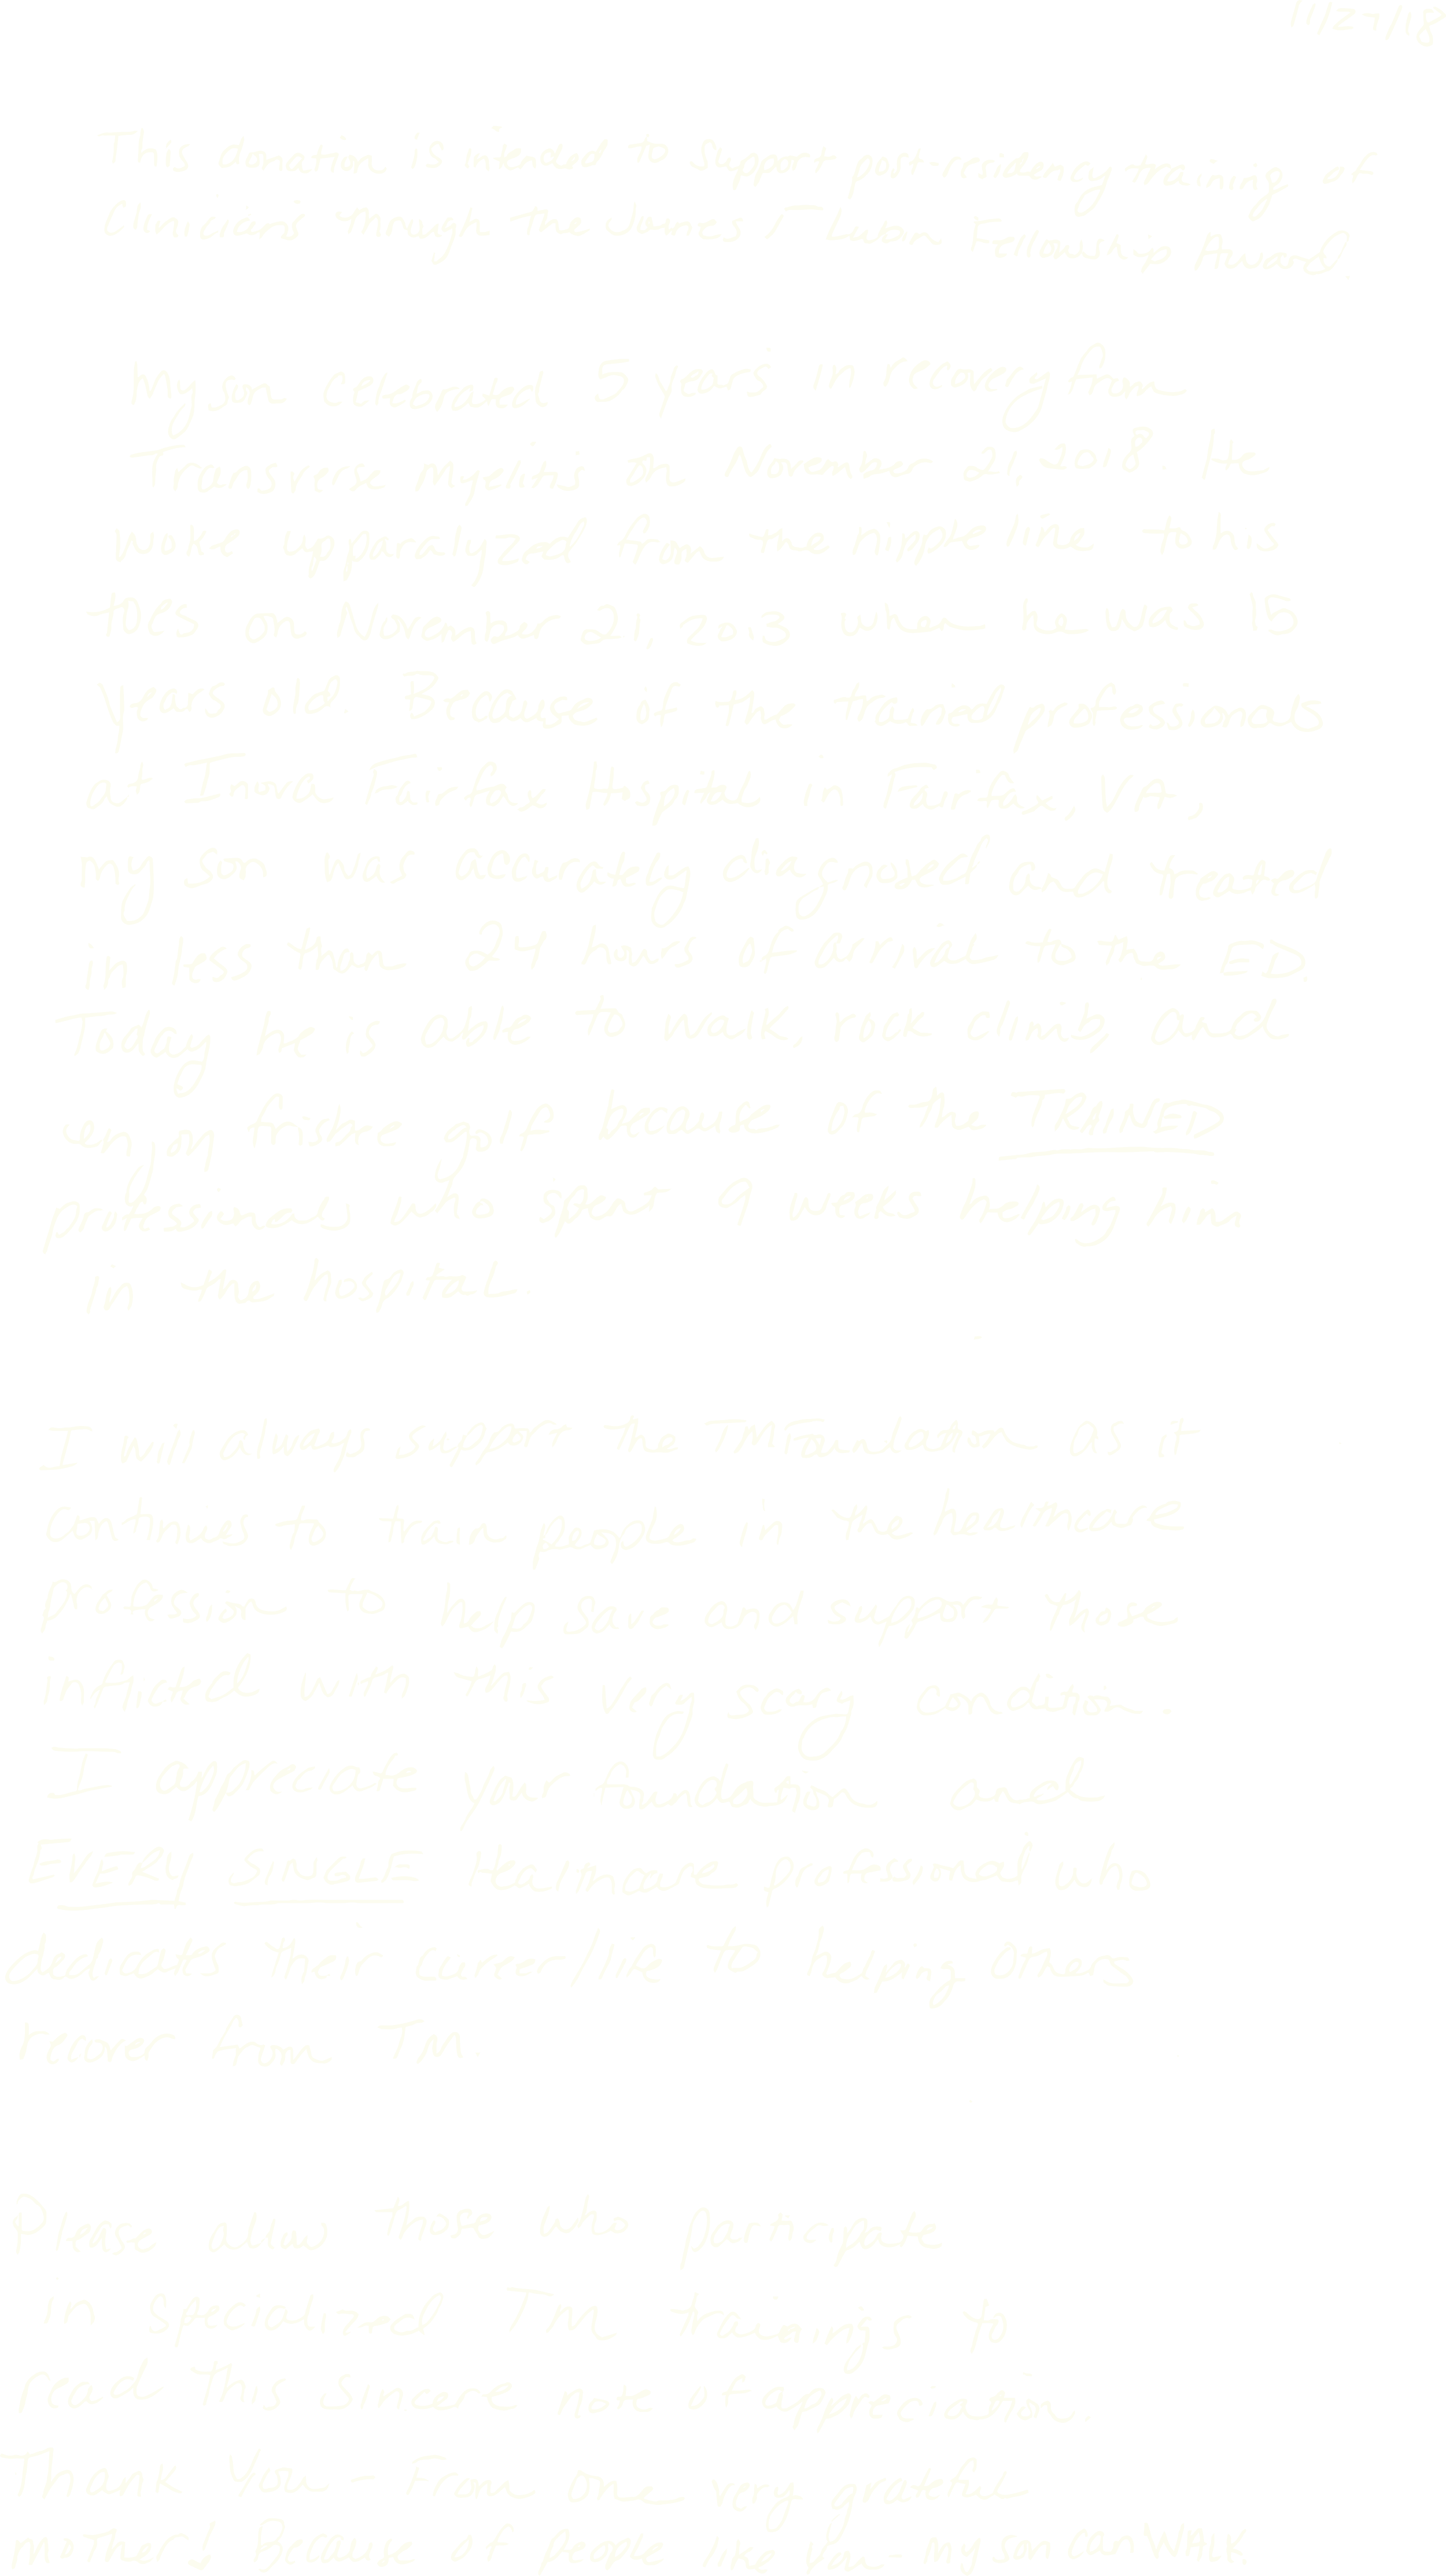 11/27/18
This donation is intended to support post-residency training of
Clinicians through the James T Lubin Fellowship Award.
My son celebrated 5 years in recovery from
Transverse Myelitis on November 21, 2018. He
woke up paralyzed from the nipple line to his
toes on November 21, 2013 when he was 15
years old. Because of the trained professionals
at Inova Fairfax Hospital in Fairfax, VA,
my son was accurately diagnosed and treated
in less than 24 hours of arrival to the ED.
Today he is able to walk, rock climb, and
enjoy frisbee golf because of the TRAINED
professionals who spent 9 weeks helping him
in the hospital.
I will always support the TM Foundation as it
continues to train people in the healthcare
profession to help save and support those
inflicted with this very scary condition.
I appreciate your foundation and
EVERY SINGLE Healthcare professional who
dedicates their career/life to helping others
recover from TM.
Please allow those who participate
in specialized TM trainings to
read this sincere note of appreciation.
Thank You - From one very grateful
mother! Because of people like you - my son can WALK